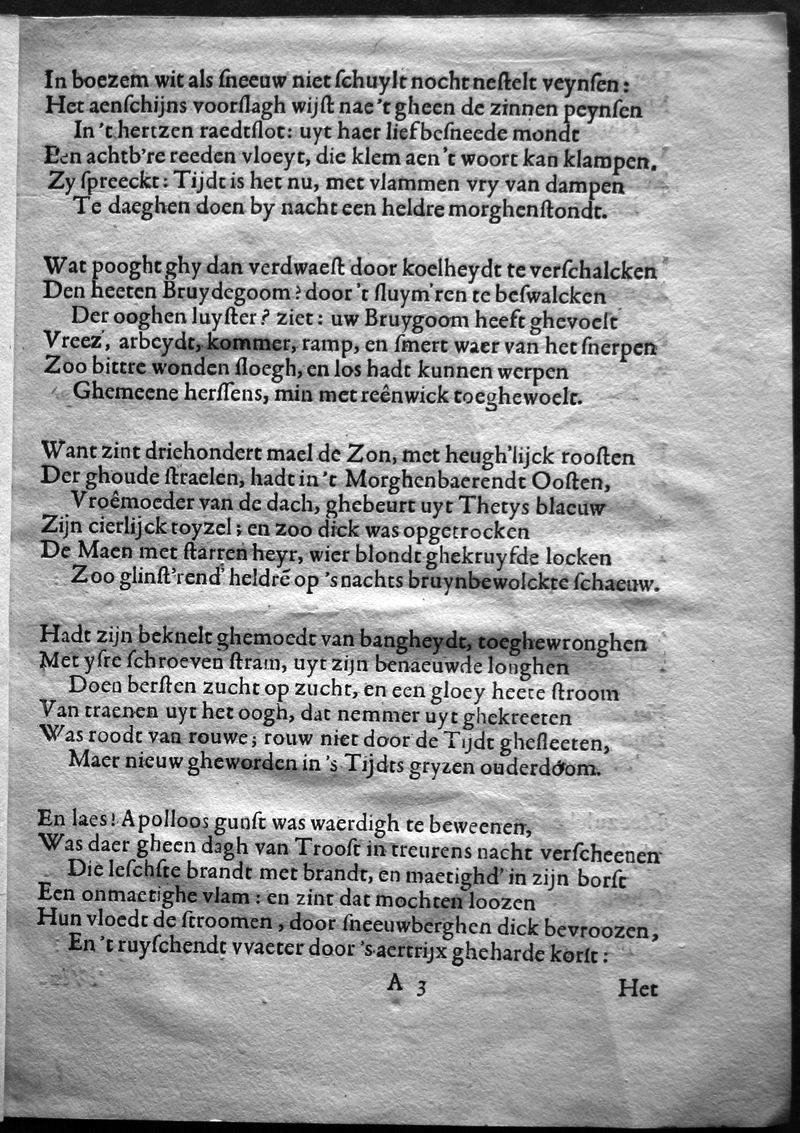 In boezem wit als ſneeuw niet ſchuylt nocht neſtelt veynſen:
Het aenſchijns voorſlagh wijſt nae 't gheen de zinnen peynſen
In 't hertzen raedtſlot: uyt haer liefbeſneede mondt
Een achtb're reeden vloeyt, die klem aen 't woort kan klampen.
Zy ſpreeckt: Tijdt is het nu, met vlammen vry van dampen
Te daeghen doen by nacht een heldre morghenſtondt.
Wat pooght ghy dan verdwaeſt door koelheydt te verſchalcken
Den heeten Bruydegoom? door 't ſluym'ren te beſwalcken
Der ooghen luyſter? ziet: uw Bruygoom heeft ghevoelt
Vreez', arbeydt, kommer, ramp, en ſmert waer van het ſnerpen
Zoo bittre wonden ſloegh, en los hadt kunnen werpen
Ghemeene herſſens, min met reênwick toeghewoelt.
Want zint driehondert mael de Zon, met heugh'lijck rooſten
Der ghoude ſtraelen, hadt in 't Morghenbaerendt Ooſten,
Vroêmoeder van de dach, ghebeurt uyt Thetys blaeuw
Zijn cierlijck toyzel; en zoo dick was opgetrocken
De Maen met ſtarren heyr, wier blondt ghekruyfde locken
Zoo glinſt'rend' heldrē op 's nachts bruynbewolckte ſchaeuw.
Hadt zijn beknelt ghemoedt van bangheydt, toeghewronghen
Met yſre ſchroeven ſtram, uyt zijn benaeuwde longhen
Doen berſten zucht op zucht, en een gloey heete ſtroom
Van traenen uyt het oogh, dat nemmer uyt ghekreeten
Was roodt van rouwe; rouw niet door de Tijdt gheſleeten,
Maer nieuw gheworden in 's Tijdts gryzen ouderdoom.
En laes! Apolloos gunſt was waerdigh te beweenen,
Was daer gheen dagh van Trooſt in treurens nacht verſcheenen
Die leſchſte brandt met brandt, en maetighd' in zijn borſt
Een onmaetighe vlam: en zint dat mochten loozen
Hun vloedt de ſtroomen, door ſneeuwberghen dick bevroozen,
En 't ruyſchendt vvaeter door 's aertrijx gheharde korſt:
A 3
Het